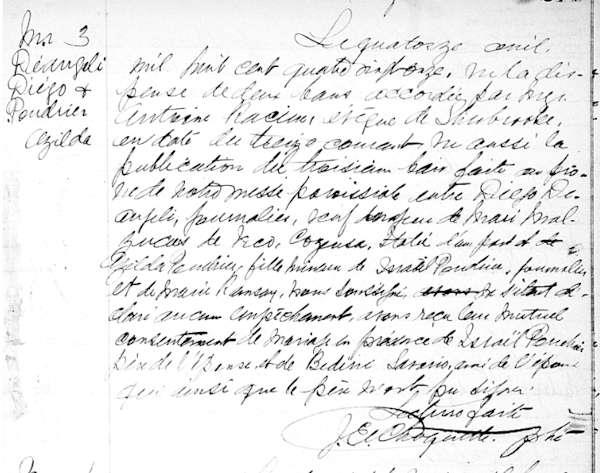 M 3
Déangeli
Diégo &
Poudrier
Azilda
Le quatorze avril
mil huit cent quatre vingt onze, vu la dis-
pense de deux bans accordée par Mgr
Antoine Racine évêque de Sherbrooke,
en date du treize courant vu aussi la
publication du troisième ban faite au prô-
ne de notre messe paroissiale entre Diego De-
angeli, journalier, veuf majeur de Marie
de Italie d'une part et
Azilda Poudrier, fille mineure de Israël Poudrier, journalier
et de Marie Ramsay, nous soussigné, prêtre
aucun empêchement, avons reçu leur mutuel
consentement de mariage en présence de Israël Poudrier
père de l'épouse et de Bedini Saverio, ami de l'époux
qui ainsi que le père n'ont pu signer
Lecture faite
J. E. Choquette. Ptre